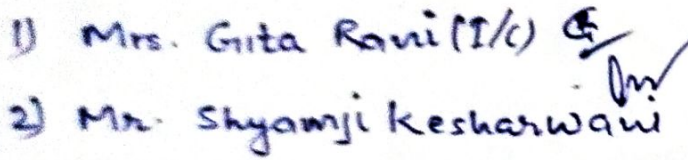 1) Mrs. Gita Rani (I/c)
2) Mr. Shyamji Kesharwani